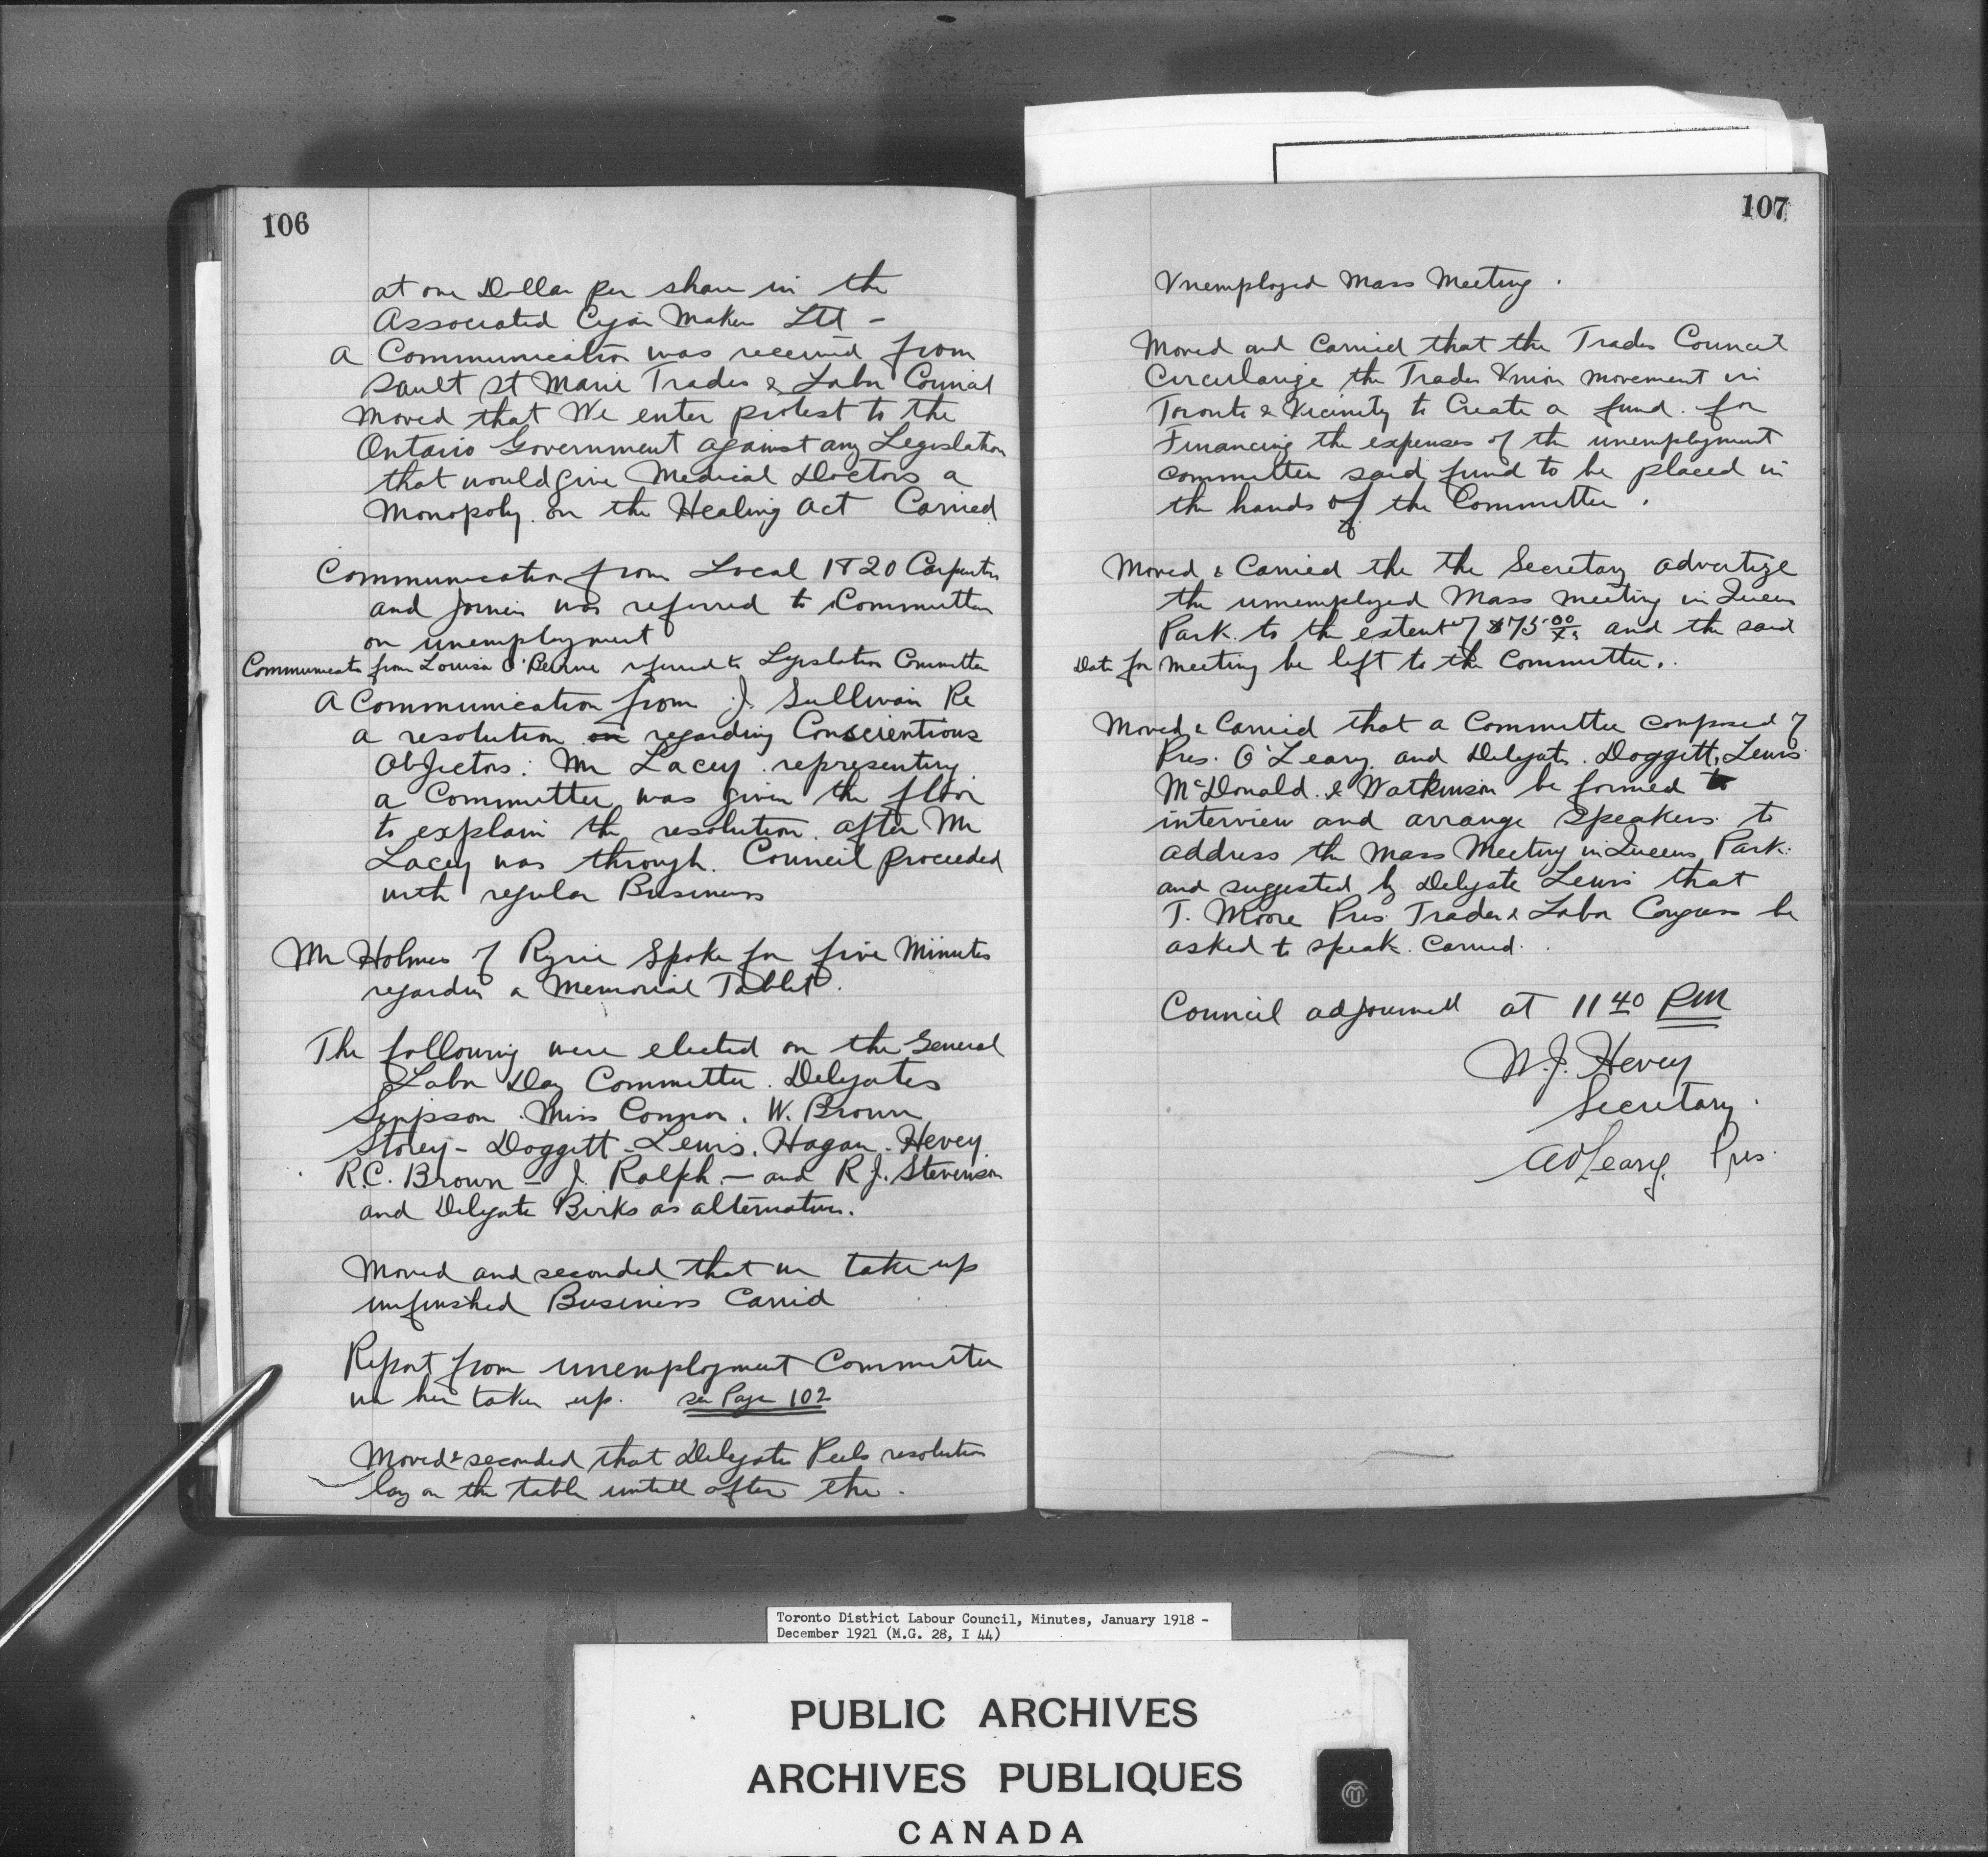 106
at one Dollar per share in the
Associated Cigar Maker Ltd -
A Communication was received from
Sault St Marie Trades & Labor Council
Moved that We enter protest to the
Ontario Government against any Legislation
that would give Medical Doctors a
Monopoly on the Healing Act Carried
Communication from Local 1820 Carpenters
and Joiners was referred to Committee
on unemployment
Communicatn from Louisa O'Beirne referred to Legislation Committee
A Communication from J. Sullivan Re
a resolution on regarding Conscientious
Objectors. Mr Lacey representing
a Committee was given the floor
to explain the resolution. after Mr
Lacey was through. Council proceeded
with regular Business
Mr Holmes of Ryrie Spoke for five Minutes
regarding a Memorial Tablet.
The following were elected on the General
Labor Day Committee. Delegates
Simpson. Miss Connor. W. Brown
Storey - Doggett - Lewis. Hagan. Hevey
R.C. Brown - J. Ralph. - and R.J. Stevenson
and Delegate Birks as alternative.
Moved and seconded that we take up
unfinished Business Carrid
Report from unemployment Committee
taken up. see Page 102
Moved & seconded that Delegate Peels resolution
lay on the table untill after the.
107
Unemployed Mass Meeting.
Moved and Carried that the Trades Council
Circularize the Trades Union movement in
Toronto & Vicinity to Create a fund. for
Financing the expenses of the unemployment
committee said fund to be placed in
the hands of the Committee.
Moved & Carried the the Secretary advertize
the umemployed Mass meeting in Queens
Park. to the extent of $75.00 and the said
Date for meeting be left to the Committee.
Moved & Carried that a Committee composed of
Pres. O'Leary. and Delegates. Doggett, Lewis
McDonald. & Watkinson be formed to
interview and arrange Speakers to
address the Mass Meeting in Queens Park.
and suggested by Delegate Lewis that
T. Moore Pres. Trades & Labor Congress be
asked to speak. Carried.
Council adjourned at 11 40 PM
W.J. Hevey
Secretary.
A O'Leary. Pres.
Toronto District Labour Council, Minutes, January 1918 -
December 1921 (M.G. 28, I 44)
PUBLIC ARCHIVES
ARCHIVES PUBLIQUES
CANADA